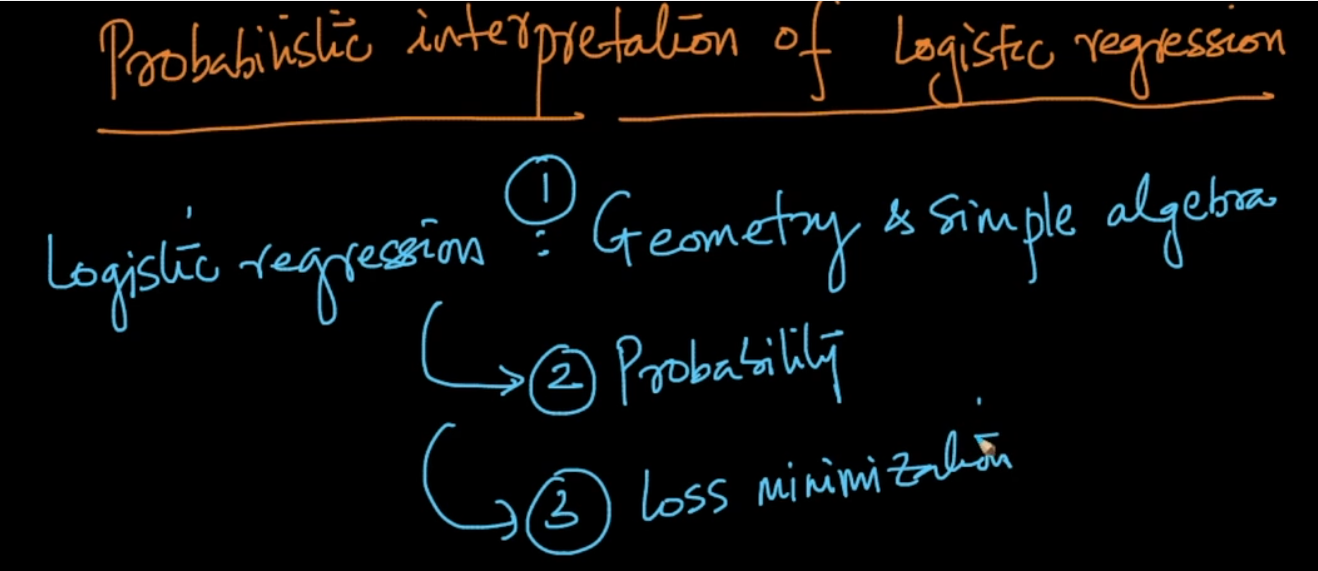 Probabilistic interpretation of Logistic regression
Logistic regression : ① Geometry & simple algebra
② Probability
③ Loss minimization